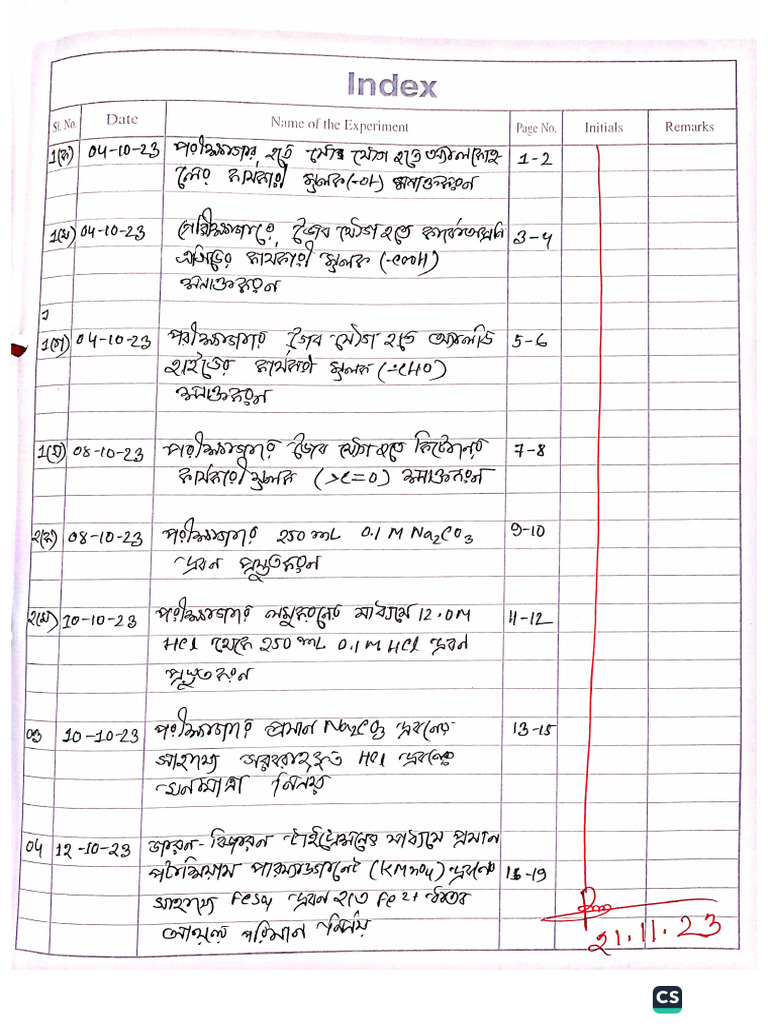 Index
Sl. No. Date Name of the Experiment Page No. Initials Remarks
1(ক) 04-10-23 পরীক্ষাগারে হতে জৈব যৌগ হতে অ্যালকোহ- 1-2
লের কার্যকারী মূলক(-OH) সনাক্তকরন
1(খ) 04-10-23 পরীক্ষাগারে জৈব যৌগ হতে কার্বোক্সলি 3-4
এসিডের কার্যকারী মূলক (-COOH)
সনাক্তকরন
1(গ) 04-10-23 পরীক্ষাগারে জৈব যৌগ হতে অ্যালডি 5-6
হাইডের কার্যকরী মূলক (-CHO)
সনাক্তকরন
1(ঘ) 08-10-23 পরীক্ষাগারে জৈব যৌগ হতে কিটোনের 7-8
কার্যকারী মূলক (>C=O) সনাক্তকরন
২(ক) 08-10-23 পরীক্ষাগারে 250 mL 0.1 M Na₂CO₃ 9-10
দ্রবন প্রস্তুতকরন
২(খ) 10-10-23 পরীক্ষাগারে লঘুকরনের মাধ্যমে 12.0M 11-12
HCl থেকে 250 mL 0.1 M HCl দ্রবন
প্রস্তুতকরন
03 10-10-23 পরীক্ষাগারে প্রমান Na₂CO₃ দ্রবনের 13-15
সাহায্যে সরবরাহকৃত HCl দ্রবনের
ঘনমাত্রা নির্নয়
04 12-10-23 জারন-বিজারন টাইট্রেশনের মাধ্যমে প্রমান
পটাশিয়াম পারম্যাঙ্গানেট (KMnO₄) দ্রবনের 16-19
সাহায্যে FeSO₄ দ্রবন হতে Fe²⁺ আয়নের
পরিমান নির্নয়
21.11.23
CS